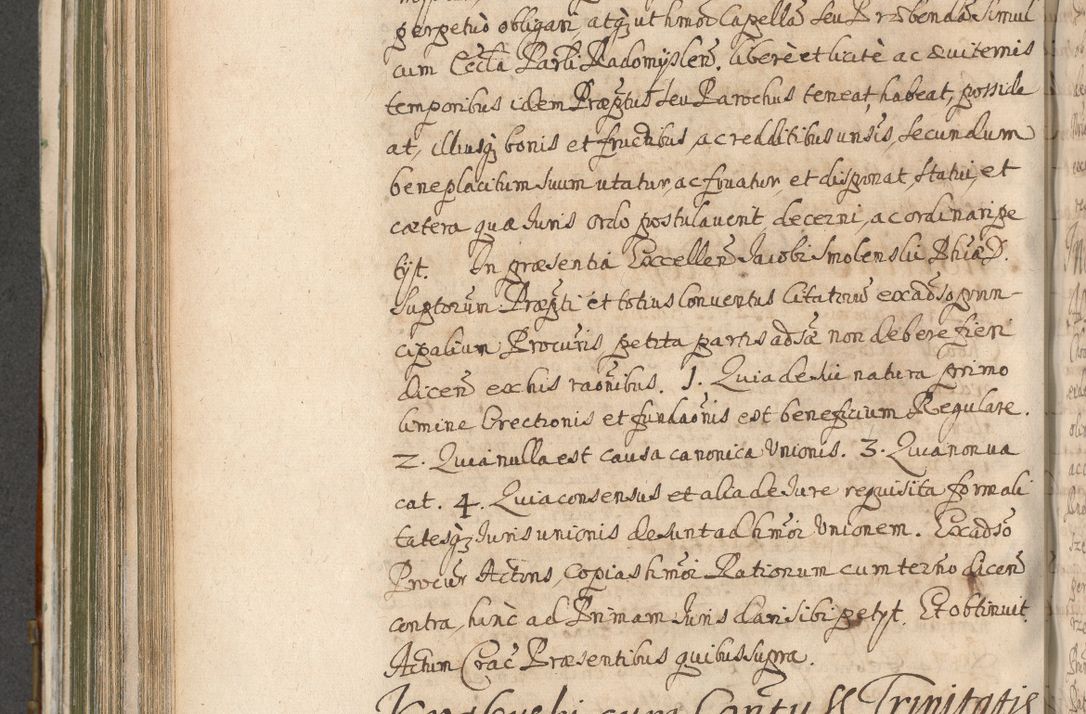 perpetuò obligari, atq̃ ut hmõi Capellã seu Præbendã simul
cum Eccla Parli Radomyslen̄. liberè et licitè ac æuiternis
temporibus idem Præptus seu Parochus teneat, habeat, posside
at, illiusq̃ bonis et fructibus, ac redditibus unsis, secundum
beneplacitum suum utatur, ac fruatur, et disponat, statui, et
cætera quæ Juris ordo postulauerit, decerni, ac ordinari pe
tyt. In præsentia Excellen̄ Jacobi Smolenski Phiæ D.
suptorum Præpti et totius Conventus Citatorũ ex adsõ prin-
cipalium Procuris petita partis adsæ non debere fieri
dicen̄ ex his raõnibus. 1. Quia de sui natura primo
limine Erectionis et fundaõnis est beneficium Regulare.
2. Quia nulla est causa canonica Unionis. 3. Quia non ua
cat. 4. Quia consensus et alia de Jure requisita formali
tatesq̃ Juris unionis desunt ad hmõi Unionem. Ex adsõ
Procur Actoris, copias hmõi Rationum cum term̃o dicen̄
contra, hinc ad Primam Juris dari sibi petyt. Et obtinuit.
Actum Crac̃ Præsentibus quibus supra.
cum Contu SS Trinitatis